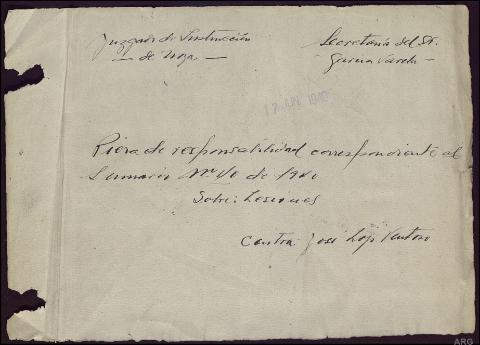 Juzgado de Instrucción
— de Noya —
Secretaria del Sr.
Garcia Varela -
17 JUN 1940
Pieza de responsabilidad correspondiente al
Sumario nº 40 de 1940
Sobre: Lesiones
Contra: José
ARG